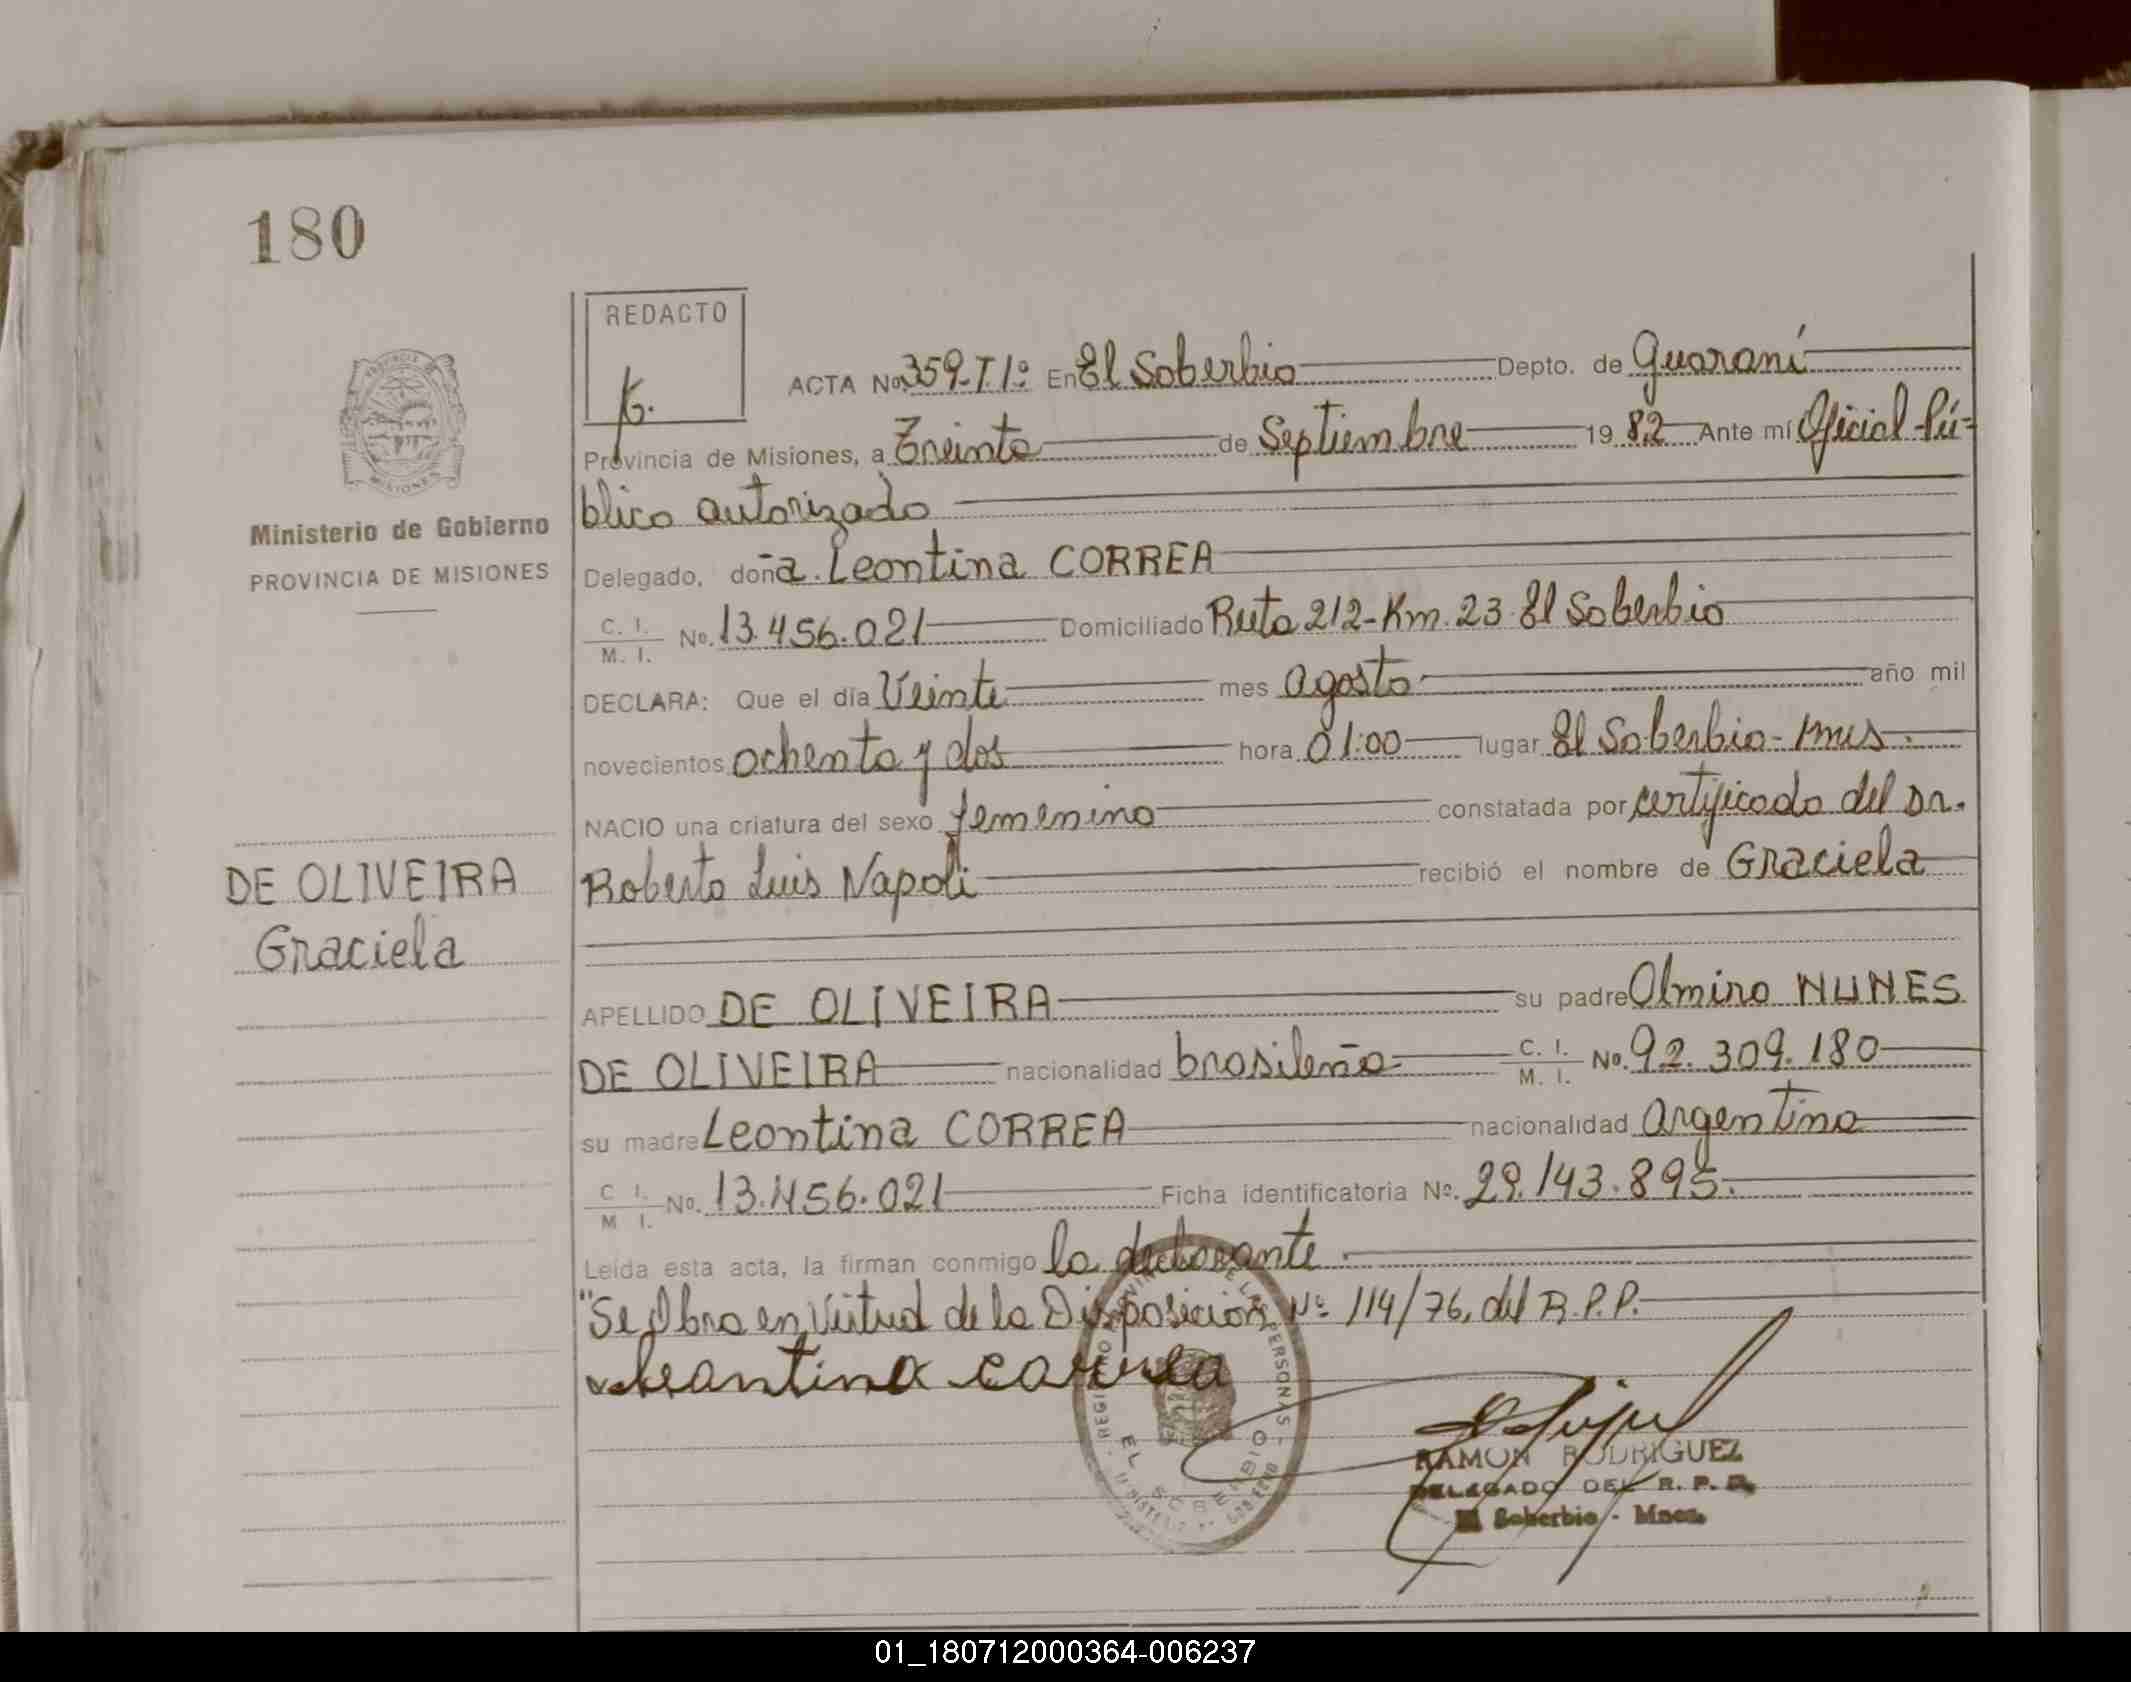 180
REDACTO
ACTA No. 359-T.1º En El Soberbio Depto. de Guaraní
Provincia de Misiones, a Treinta de Septiembre 19 82 Ante mí Oficial Pú-
blico autorizado
Delegado, doña Leontina CORREA
C. I.
M. I. No. 13.456.021 Domiciliado Ruta 212-Km. 23 El Soberbio
DECLARA: Que el día Veinte mes agosto año mil
novecientos ochenta y dos hora 01:00 lugar El Soberbio - Mnes.
NACIO una criatura del sexo femenino constatada por certificado del Dr.
Roberto Luis Napoli recibió el nombre de Graciela
APELLIDO DE OLIVEIRA su padre Olmiro NUNES
DE OLIVEIRA nacionalidad brasileña C. I. M. I. No. 92.309.180
su madre Leontina CORREA nacionalidad Argentina
C. I.
M. I. No. 13.456.021 Ficha identificatoria No. 29.143.895.
Leída esta acta, la firman conmigo la declarante.
"Se Obra en Virtud de la Disposición Nº 114/76, del R.P.P.
Leantina carrea
RAMON RODRIGUEZ
DELEGADO DEL R. P. P.
El Soberbio - Mnes.
EL SOBERBIO
PROVINCIA DE MISIONES
Ministerio de Gobierno
PROVINCIA DE MISIONES
DE OLIVEIRA
Graciela
01_180712000364-006237